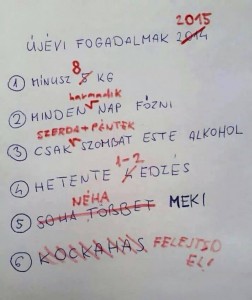 2015
ÚJÉVI FOGADALMAK 2014
8
1 MÍNUSZ 5 KG
harmadik
2 MINDEN NAP FŐZNI
SZERDA+PÉNTEK
3 CSAK SZOMBAT ESTE ALKOHOL
1-2
4 HETENTE EDZÉS
NÉHA
5 SOHA TÖBBET MEKI
6 KOCKAHAS FELEJTSD
EL!